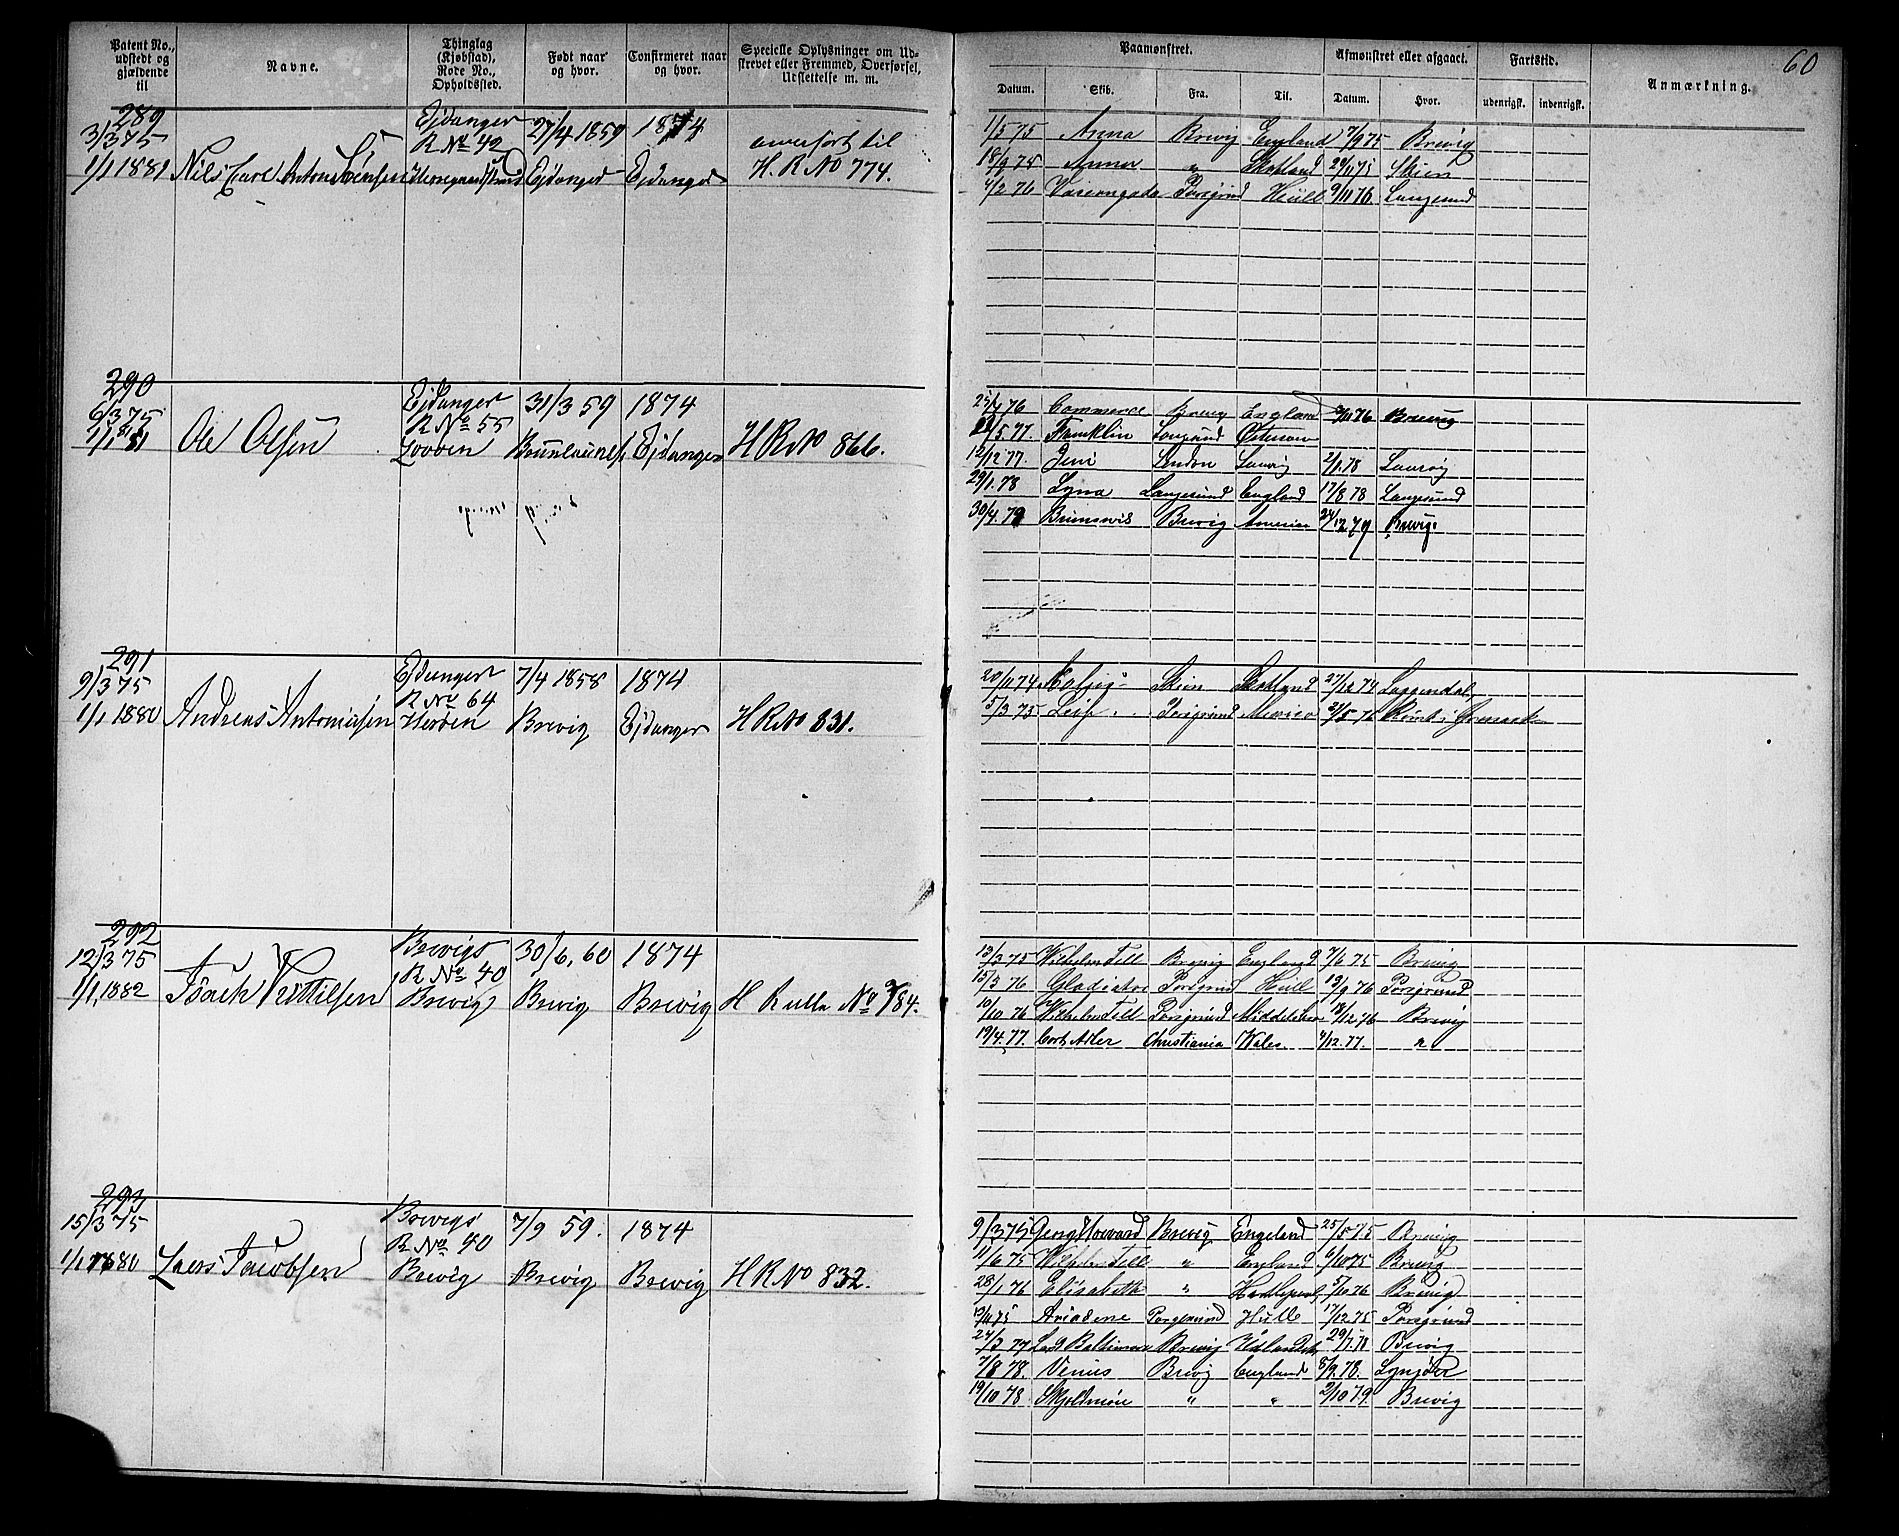 Patent No., udstedt og gjældende til
Navne.
Thinglag (Kjøbstad), Rode No., Opholdssted.
Født naar og hvor.
Confirmeret naar og hvor.
Specielle Oplysninger om Udskrevet eller Fremmed, Overførsel, Udslettelse m. m.
Paamønstret.
Afmønstret eller afgaaet.
Fartstid.
60
Datum. Skib. Fra. Til. Datum. Hvor. udenrigsk. indenrigsk.
Anmærkning.
289
3/3 75
1/1 1881
Nils Carl Anton
Ejdanger
R No 42
27/4 1859
Ejdanger
1874
Ejdanger
overført til
H. R No 774.
1/5 75 Anna Brevig England 7/9 75 Brevig
18/9 75 Anna " Skotland 29/11 75 Skien
4/2 76 Porsgrund Hull 9/11 76 Langesund
290
6/3 75
1/1 81
Ole Olsen
Ejdanger
R No 55
31/3 59
1874
Ejdanger
H R No 866.
76 Commerce Brevig England 76 Brevig
/5 77. Franklin Langesund
12/12 77. London Laurvig 2/1 78 Laurvig
29/1. 78 Langesund England 17/8 78 Langesund
30/4 79 Brunsvik Brevig Amerika 24/12 79 Brevig.
291
9/3 75
1/1 1880
Andreas Antonisen
Ejdanger
R No 64
Herøen
7/4 1858
Brevig
1874
Ejdanger
H R No 831.
20/11 74 Skien Skotland 27/12 74
5/3 75 Leif Porsgrund Mexico
292
12/3 75
1/1 1882
Isach Kittilsen
Brevigs
R No 40
Brevig
30/6. 60
Brevig
1874
Brevig
H Rulle No 784.
13/3 75 Wilhelm Tell Brevig England 7/6 75 Brevig
15/3 76 Gladiator Porsgrund Hull 13/9 76 Porsgrund
10/10 76 Wilhelm Tell Porsgrund 18/12 76 Brevig
19/4. 77. Cort Adler Christiania Wales. /12. 77. "
293
15/3 75
1/1 1880
Lars Jacobsen
Brevigs
R No 40
Brevig
7/9 59.
Brevig
1874
Brevig
H R No 832.
9/3 75 Georg Howard Brevig Engeland 25/5 75 Brevig
11/6 75 Wilhelm Tell " England 6/10 75 Brevig
28/1 76 Elisabeth " 5/10 76 Brevig
13/11 75 Ariadene Porsgrund Hull 17/12 75 Porsgrund
24/3 77 Lord Baltimore Brevig 29/1 78 Brevig
7/8 78. Venus Brevig England 8/9. 78.
19/10 78 Skjoldmøen " " 2/10 79. Brevig